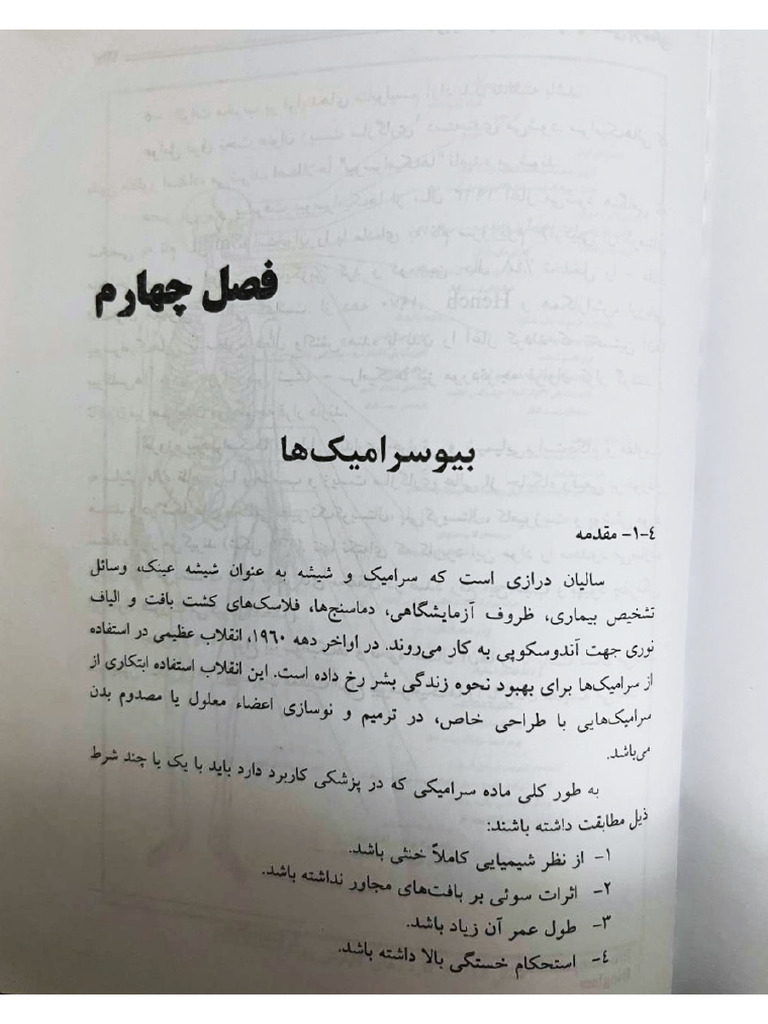 فصل چهارم
بیوسرامیک‌ها
٤-۱- مقدمه
سالیان درازی است که سرامیک و شیشه به عنوان شیشه عینک، وسائل
تشخیص بیماری، ظروف آزمایشگاهی، دماسنج‌ها، فلاسک‌های کشت بافت و الیاف
نوری جهت آندوسکوپی به کار می‌روند. در اواخر دهه ۱۹٦۰، انقلاب عظیمی در استفاده
از سرامیک‌ها برای بهبود نحوه زندگی بشر رخ داده است. این انقلاب استفاده ابتکاری از
سرامیک‌هایی با طراحی خاص، در ترمیم و نوسازی اعضاء معلول یا مصدوم بدن
می‌باشد.
به طور کلی ماده سرامیکی که در پزشکی کاربرد دارد باید با یک یا چند شرط
ذیل مطابقت داشته باشند:
۱- از نظر شیمیایی کاملاً خنثی باشد.
۲- اثرات سوئی بر بافت‌های مجاور نداشته باشد.
۳- طول عمر آن زیاد باشد.
٤- استحکام خستگی بالا داشته باشد.